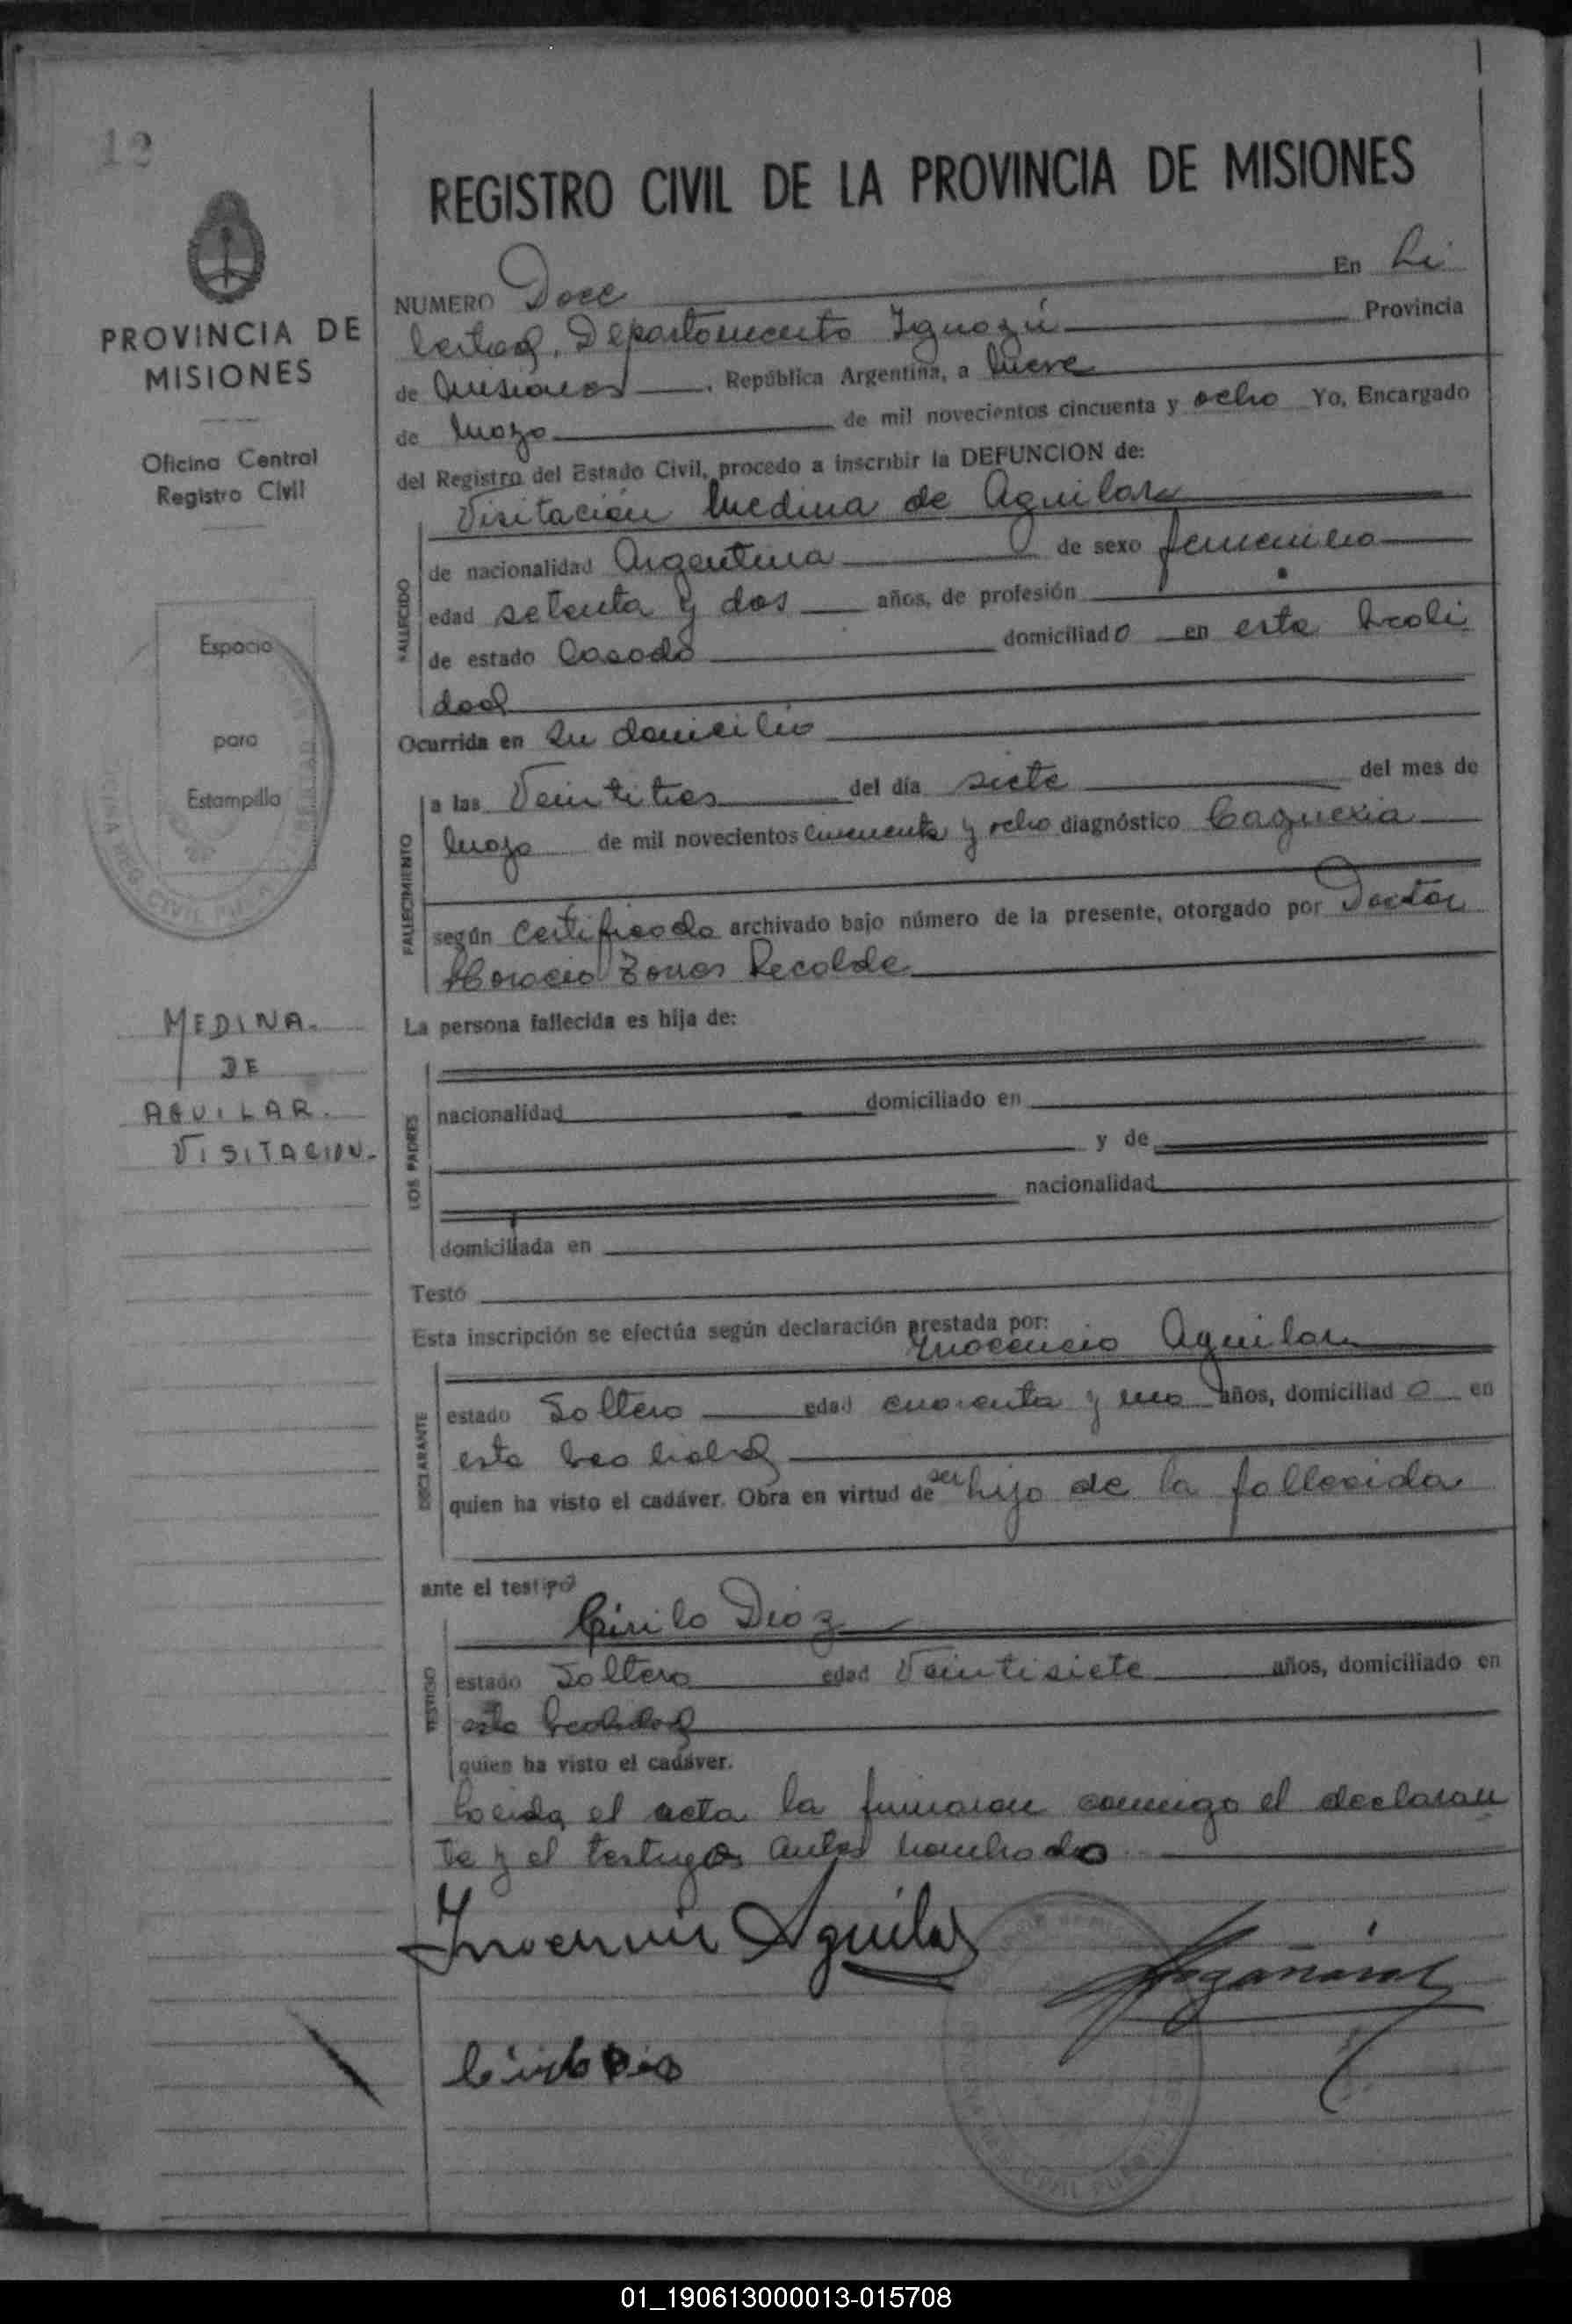 12
PROVINCIA DE
MISIONES
Oficina Central
Registro Civil
Espacio
para
Estampilla
MEDINA.
DE
AGUILAR.
VISITACION.
REGISTRO CIVIL DE LA PROVINCIA DE MISIONES
NUMERO Doce En Li
bertad, Departamento Iguazú Provincia
de Misiones, República Argentina, a Nueve
de Mayo de mil novecientos cincuenta y ocho Yo, Encargado
del Registro del Estado Civil, procedo a inscribir la DEFUNCION de:
Visitación Medina de Aguilar
FALLECIDO
de nacionalidad Argentina de sexo femenino
edad setenta y dos años, de profesión
de estado Casada domiciliado en esta locali
dad
Ocurrida en su domicilio
FALLECIMIENTO
a las Veintitres del día siete del mes de
Mayo de mil novecientos cincuenta y ocho diagnóstico Caquexia
según certificado archivado bajo número de la presente, otorgado por Doctor
Horacio Recalde
La persona fallecida es hija de:
LOS PADRES
nacionalidad domiciliado en
y de
nacionalidad
domiciliada en
Testó
Esta inscripción se efectúa según declaración prestada por:
Inocencio Aguilar
DECLARANTE
estado Soltero edad cuarenta y uno años, domiciliado en
esta localidad
quien ha visto el cadáver. Obra en virtud de ser hijo de la fallecida
ante el testigo
Cirilo Dioz
TESTIGO
estado Soltero edad Veintisiete años, domiciliado en
esta localidad
quien ha visto el cadáver.
Leida el acta la firmaron conmigo el declaran
te y el testigo antes nombrado
Inocencio Aguilar
01_190613000013-015708